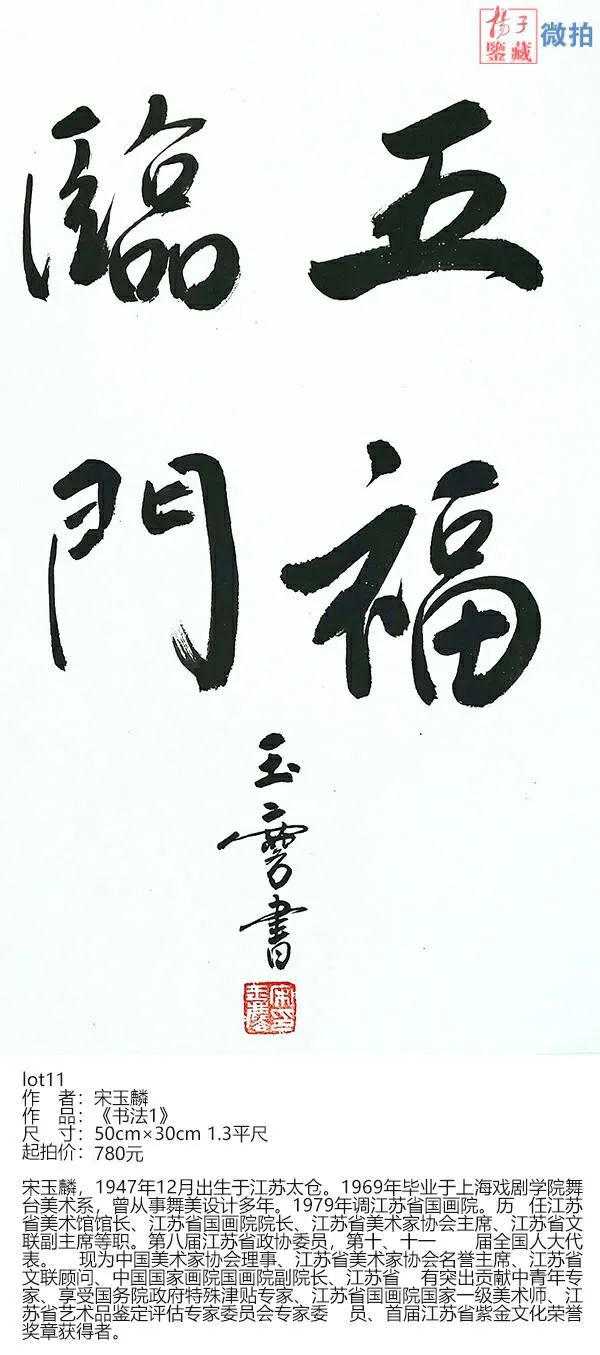 揚子
鑒藏
微拍
五福
臨門
玉麐書
lot11
作 者：宋玉麟
作 品：《书法1》
尺 寸：50cm×30cm 1.3平尺
起拍价：780元
宋玉麟，1947年12月出生于江苏太仓。1969年毕业于上海戏剧学院舞
台美术系，曾从事舞美设计多年。1979年调江苏省国画院。历 任江苏
省美术馆馆长、江苏省国画院院长、江苏省美术家协会主席、江苏省文
联副主席等职。第八届江苏省政协委员，第十、十一 届全国人大代
表。 现为中国美术家协会理事、江苏省美术家协会名誉主席、江苏省
文联顾问、中国国家画院国画院副院长、江苏省 有突出贡献中青年专
家、享受国务院政府特殊津贴专家、江苏省国画院国家一级美术师、江
苏省艺术品鉴定评估专家委员会专家委 员、首届江苏省紫金文化荣誉
奖章获得者。